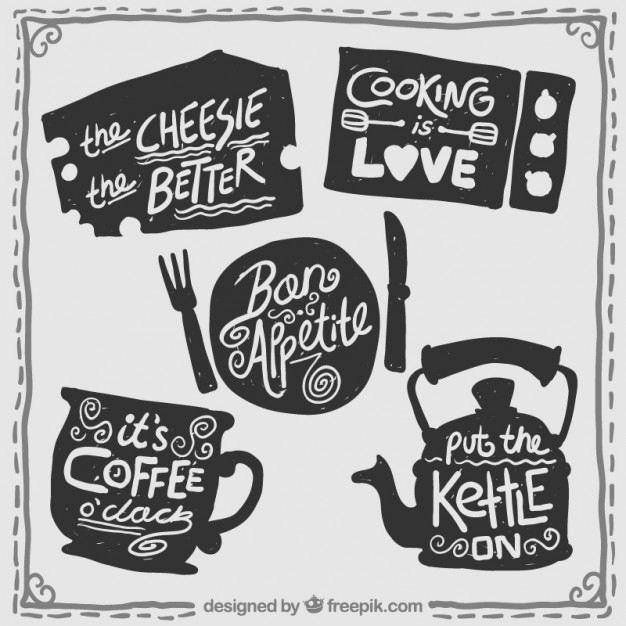 the CHEESIE
the BETTER
COOKING
is
LOVE
Bon
Appetite
it's
COFFEE
o'clock
put the
KettLE
ON
designed by freepik.com